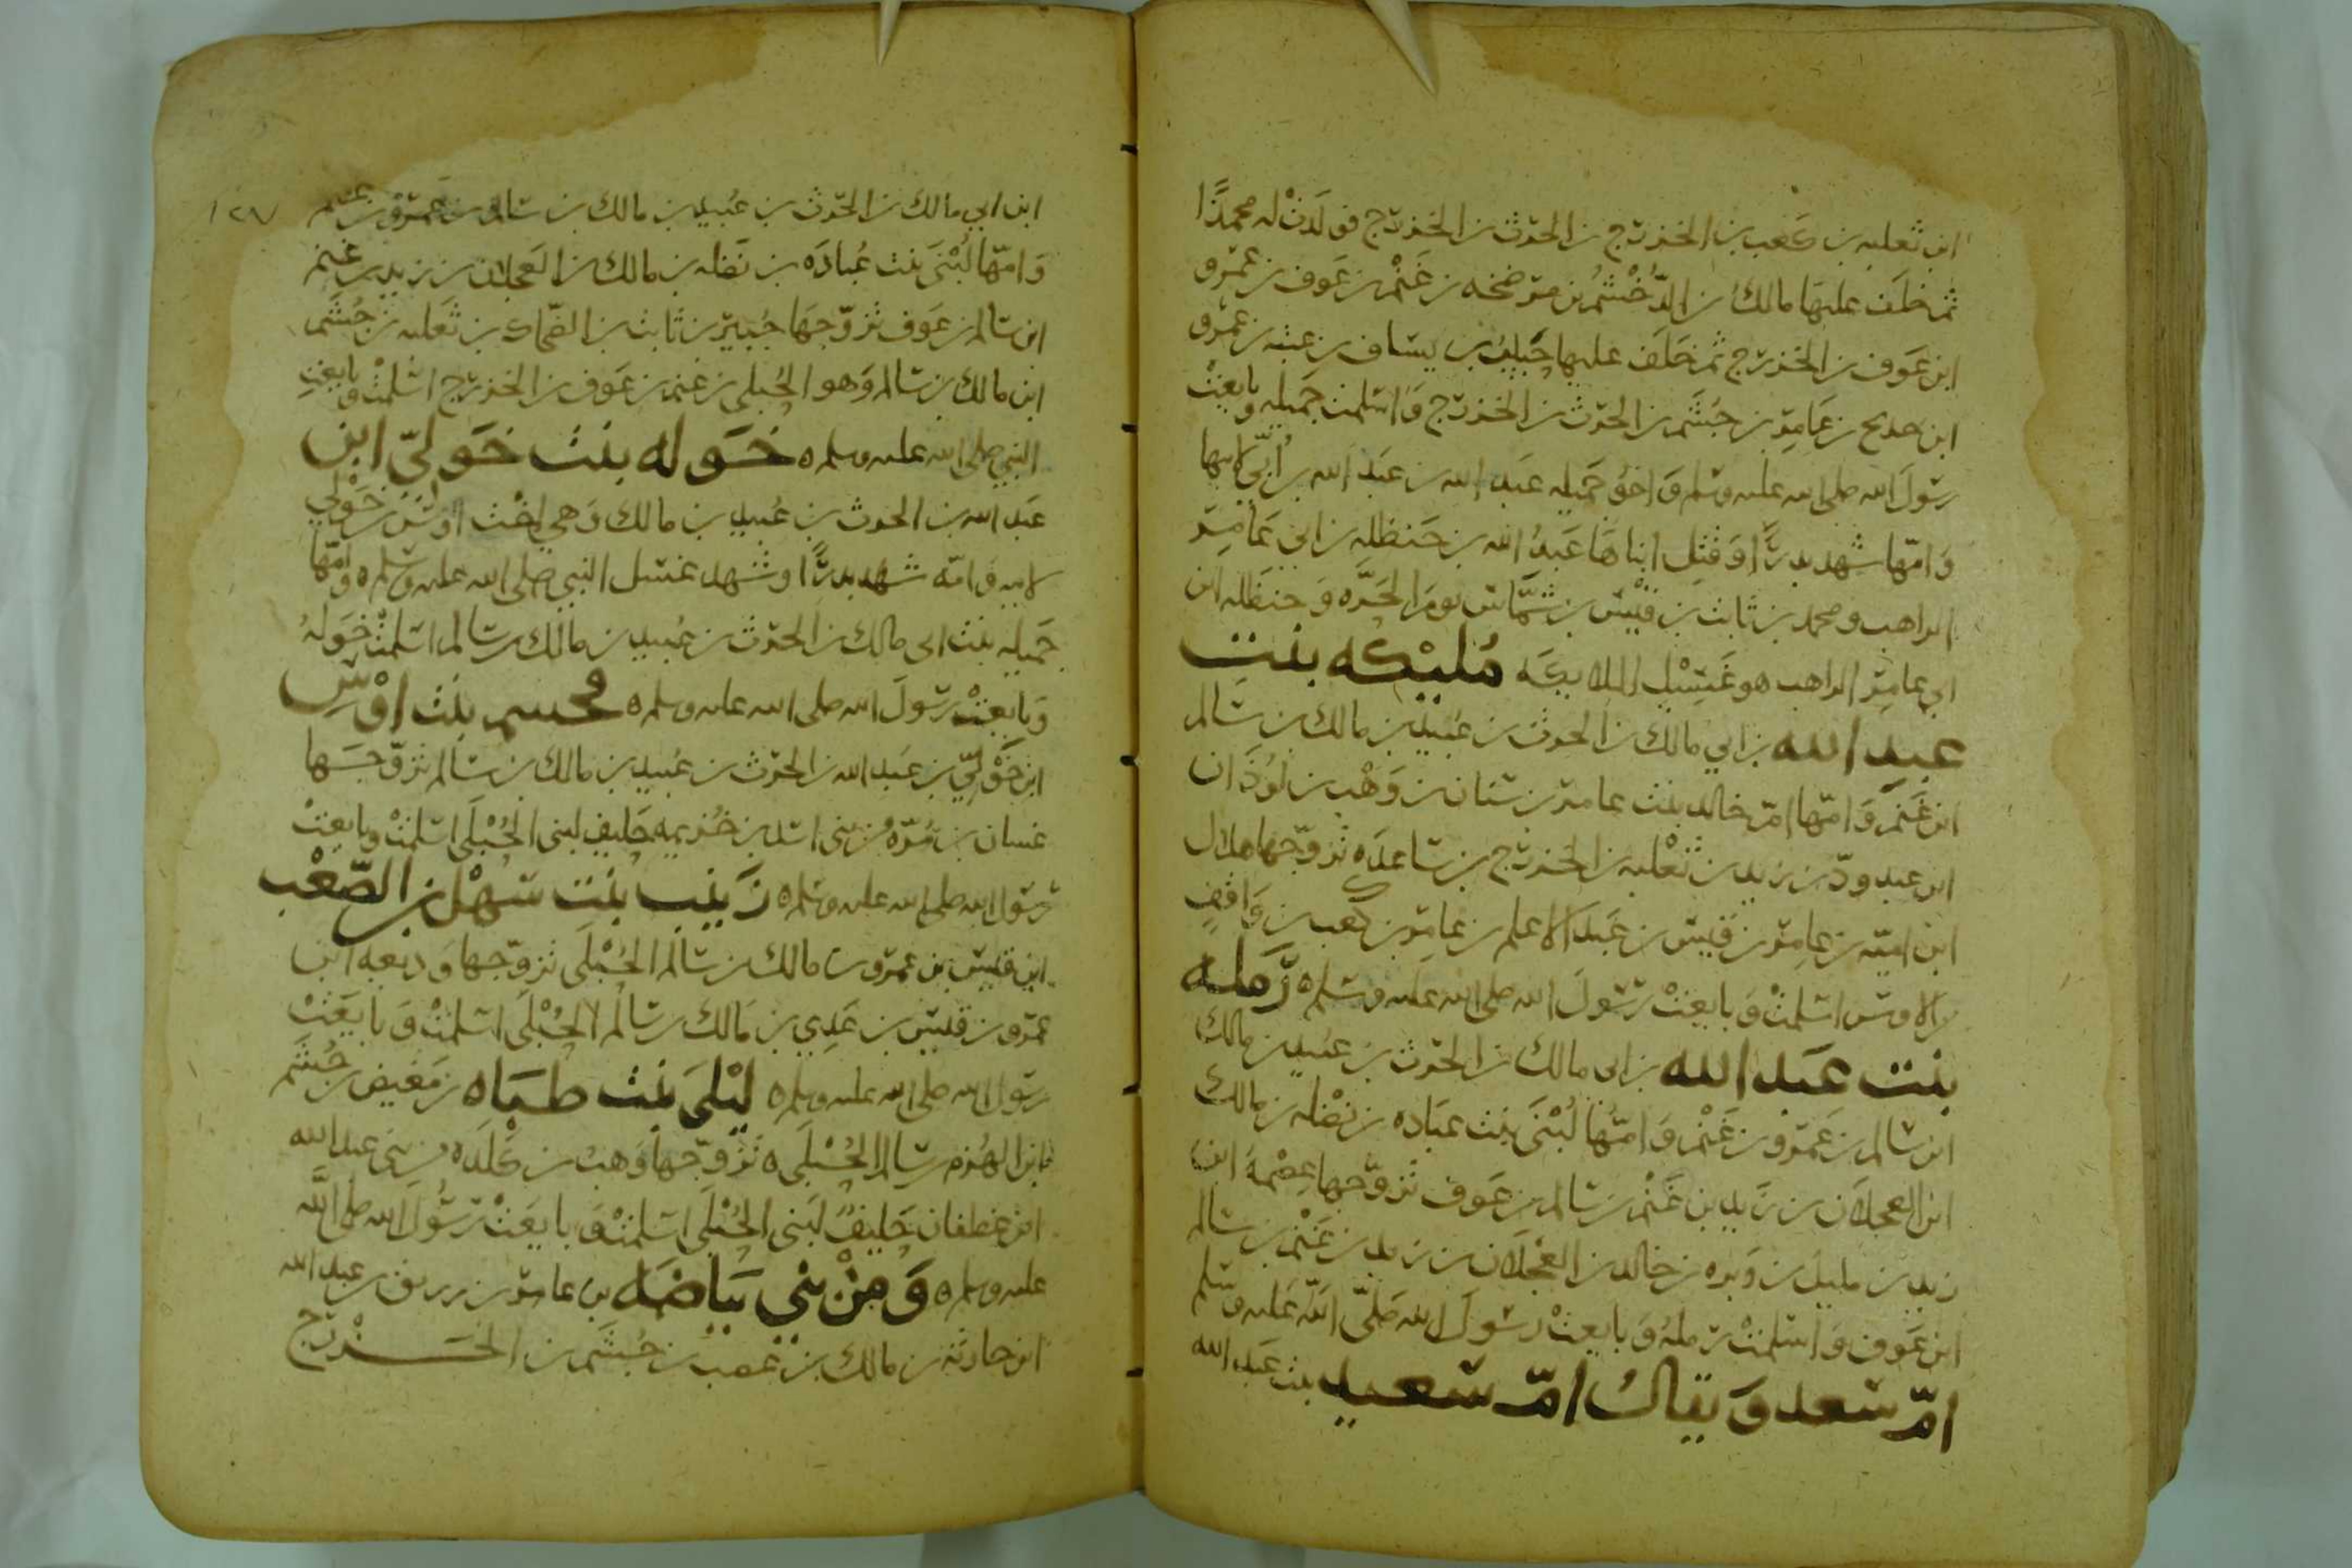 ابن ثعلبه بن كعب بن الخزرج بن الحرث بن الخزرج فولدت له محمدًا
ثم خلف عليها مالك بن الدُّخْشُم بن مرضخه بن غَنْم بن عوف بن عمرو
ابن عوف بن الخزرج ثم خلف عليها خبيب بن يساف بن عتبه بن عمرو
ابن خديج بن عامر بن جُشَم بن الحرث بن الخزرج وَاسلمت جميله وبايعت
رسولَ الله صلى الله عليه وسلم وَاخو جميله عبد الله بن عبد الله بن أُبيّ لابيها
وَامّها شهد بدرًا وَقُتِل ابناها عَبدُ الله بن حَنظله بن ابي عَامِر
الراهب ومحمد بن ثابت بن قَيْس بن شمَّاس يومَ الحَرَّه وَحنظله ابن
ابي عامِر الراهب هو غَسِيْل الملايكَه مُليْكه بنت
عبد الله بن ابي مالك بن الحرث بن عُبيد بن مالك بن سالم
ابن غَنم وَامّها امّ خالد بنت عامر بن سنان بن وَهْب بن لَوْذَان
ابن عبد ودّ بن زيد بن ثَعْلبه بن الخزرج بن ساعدَه تزوّجها هلال
ابن اميّه بن عامِر بن قَيس بن عَبد الاعلم بن عامِر بن كعب بن وَاقفٍ
الاوس اسلمتْ وَبايعتْ رسولَ الله صلى الله عليه وسلم ه رَملـه
بنت عَبد الله بن ابي مالك بن الحرث بن عبيد بن مالك
ابن سالم بن عَمرو بن غَنْم وَامّها لُبْنَى بنت عباده بن نضْله بن مالك
ابن العجلان بن زَيد بن غَنْم بن سَالم بن عَوف تزوّجها عِصْمَة ابن
زيد بن مليل بن وَبره بن خالد بن العَجْلَان بن زيد بن غَنْم بن سالم
ابن عَوف وَاسلمتْ رملهُ وَبايعتْ رسولَ الله صَلّى الله عَليه وسَلم
امّ سَعد وَيقالُ امّ سَعيد بنت عَبد الله
ابن ابي مالك بن الحرث بن عُبيد بن مالك بن سالم بن عمرو بن غنم
وَامّها لُبْنَى بنت عُبادَه بن نَضله بن مالك بن العَجلان بن زيد بن غنم
ابن سَالم بن عَوف تزوّجهَا جُبير بن ثابت بن الضّحاك بن ثَعلبه بن جُشَم
ابن مالك بن سَالم وَهو الحُبلى بن غنم بن عَوف بن الخزرج اسْلمتْ وبايعتِ
النبي صلى الله عليه وسلم ه خَـوله بنت خَوليّ ابن
عَبد الله بن الحرث بن عُبيد بن مالك وَهي اخْت اوسْ بن خَوْلي
لابيه وَامّه شَهد بدرًا وشهد غسل النبي صلى الله عليه وسلم ه وَامّها
جَميله بنت ابى مالك بن الحرث بن عُبيد بن مالك بن سَالم اسلمتْ خَولهُ
وَبايعتْ رسولَ الله صلى الله عليه وسلم ه فسحم بنت اوْس
ابن خَوْليّ بن عَبد الله بن الحرث بن عُبيد بن مالك بن سَالم تزوّجـهَا
غسان بن مُرّه من بنى اسد بن خُزيمه حَليف لبنى الحُبْلَى اسْلمتْ وبايعتْ
رسول الله صلى الله عليه وسلم ه زَينب بنت سَهْل بن الصّعْب
ابن قيس بن عمرو بن مالك بن سَالم الحُبْلَى تزوّجها وَديعه ابن
عمرو بن قيس بن عَدِي بن مَالك بن سَالم الحُبْلَى اسلمتْ وَبايَعَتْ
رسول الله صلى الله عليه وسلم ه ليْلَى بنت طبَاه بن مَعِيض بن جُشَم
ابن الهُزم بن سَالم الحُبْلَى ه تزوّجها وَهبُ بن كَلَدَه من بني عبد الله
ابن غطفان حَليفٌ لبَنى الحُبْلَى اسَلمتْ وَبايَعَتْ رسُولَ الله صلى الله
عليه وسلم ه وَمِنْ بني بَيَاضَه بن عامر بن زريق بن عبد الله
ابن حارثه بن مالك بن غضب بن جُشَم بن الخَـــزْرج